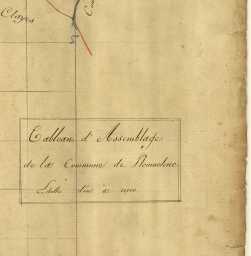 Clayes
Tableau d'Assemblage
de la Commune de
Echelle d'un à